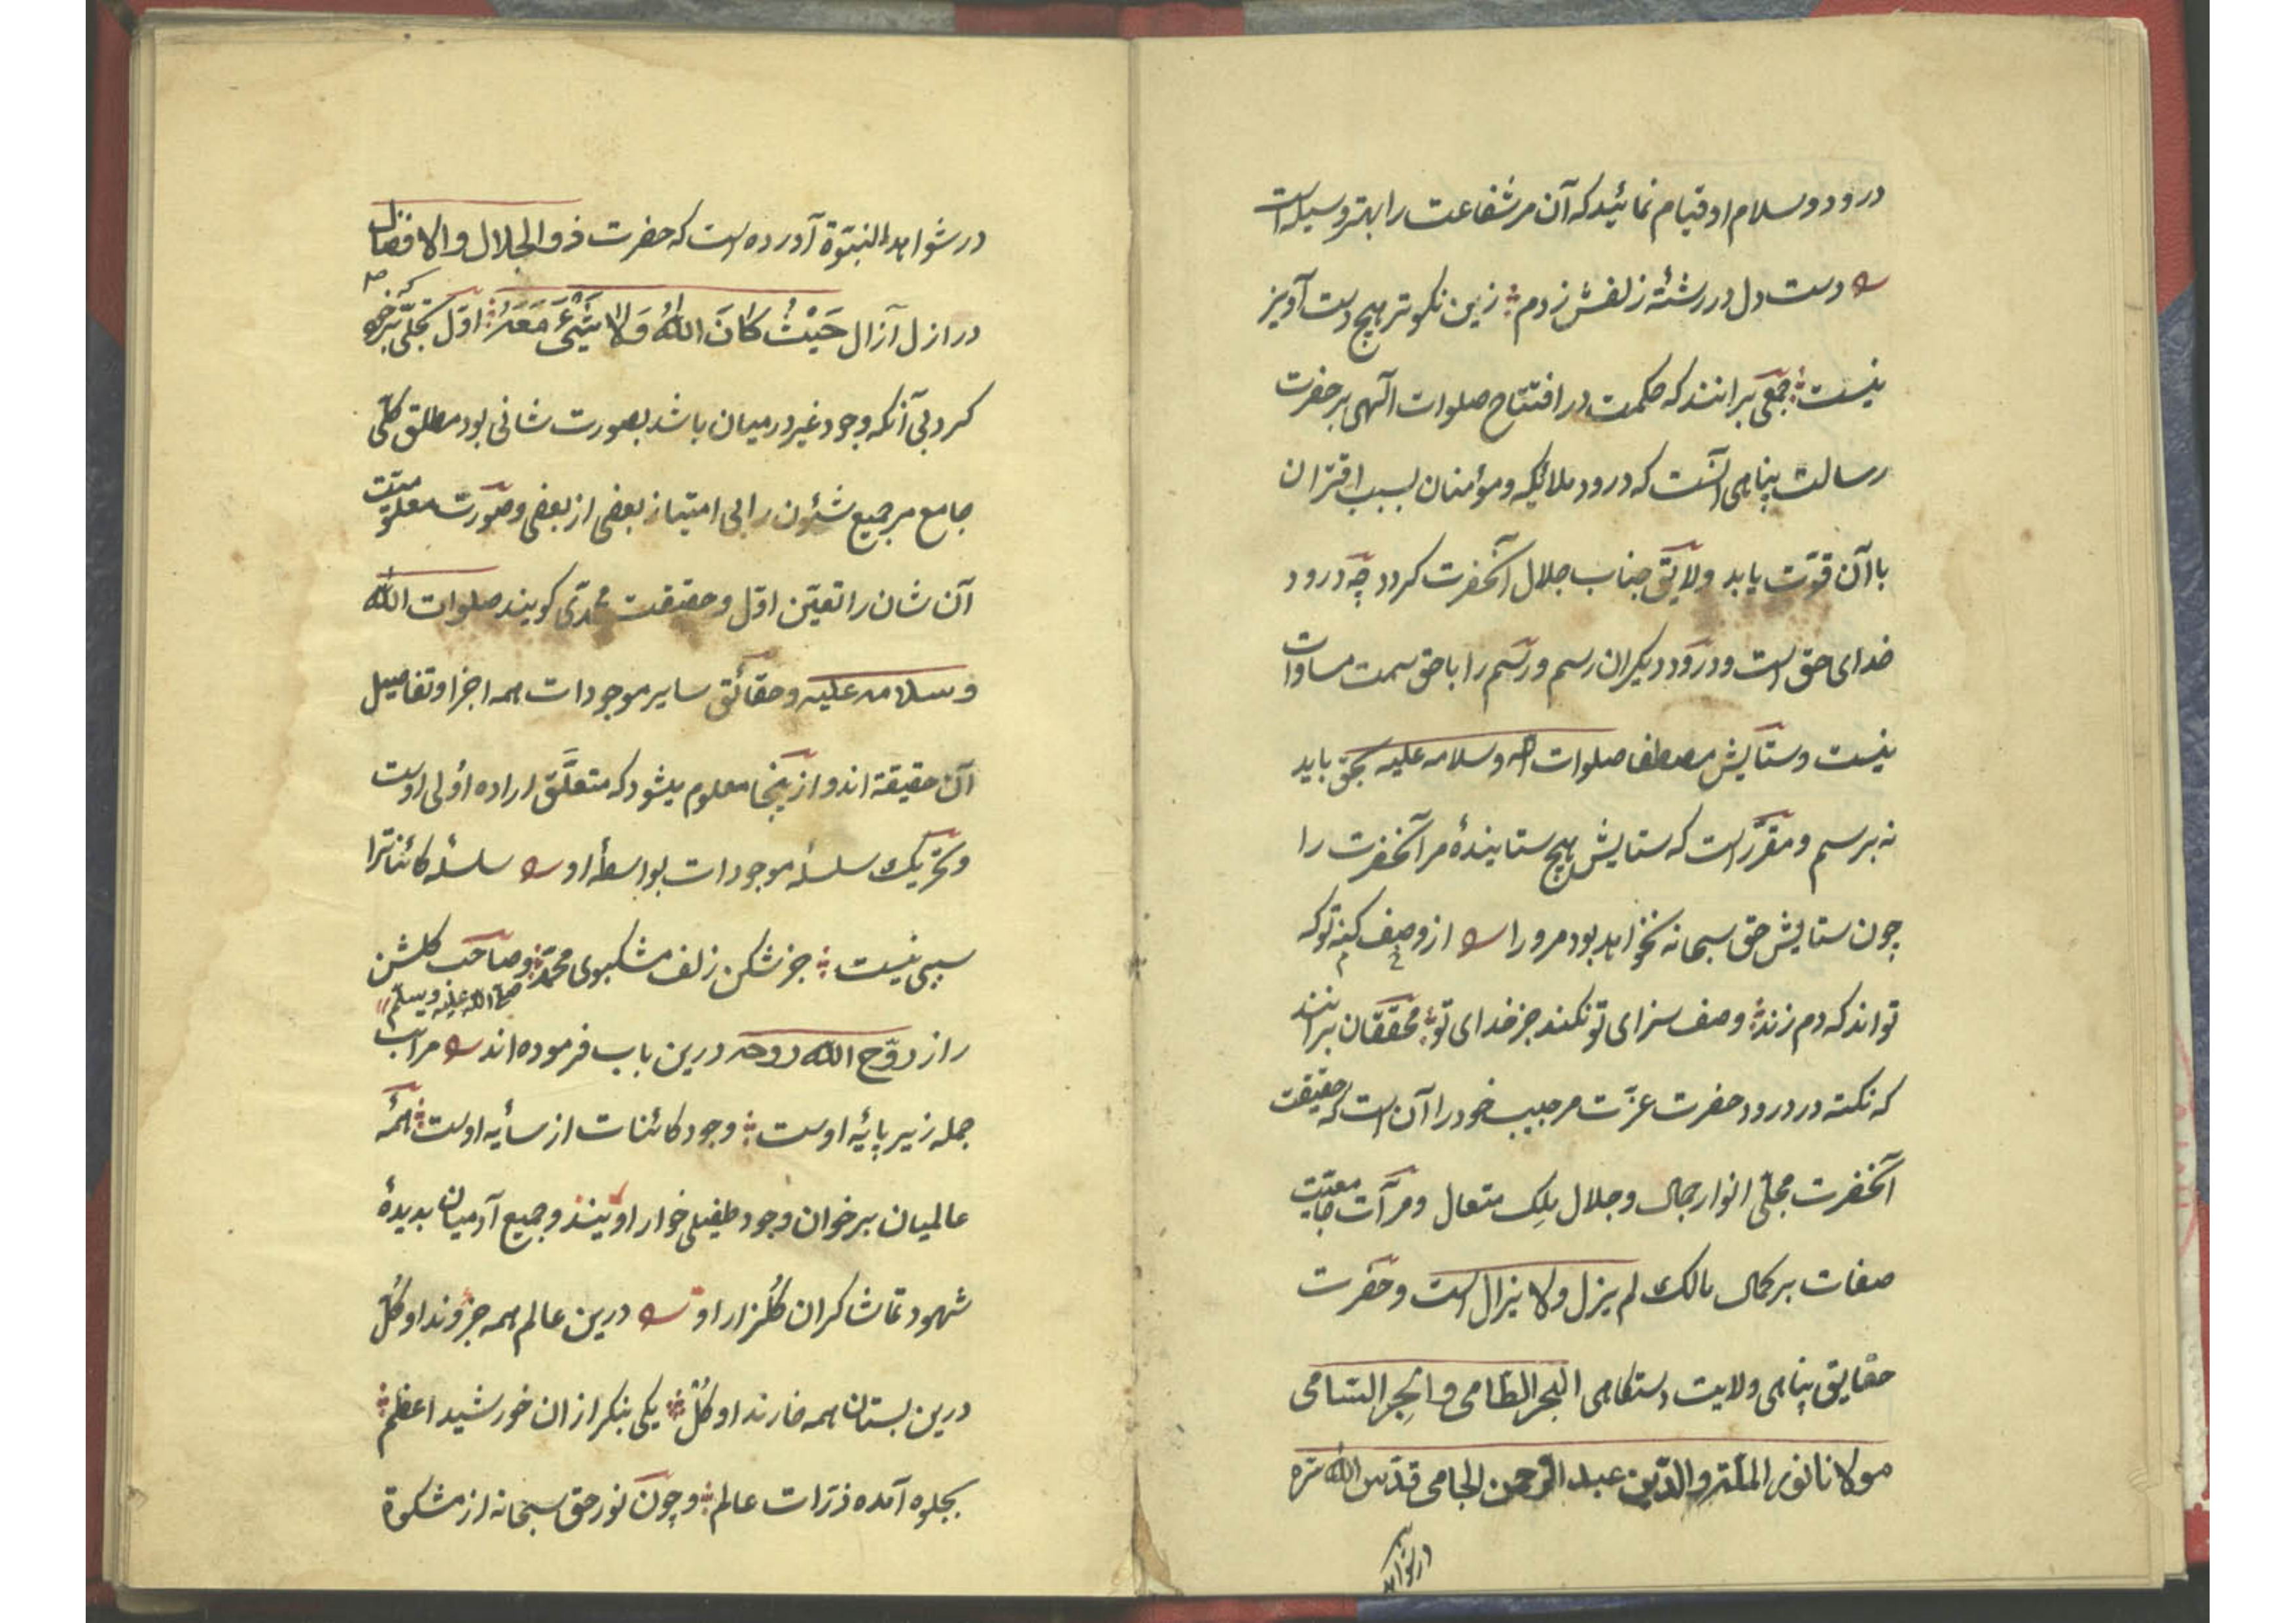 درود و سلام او قیام نمائید که آن مر شفاعت را بهتر وسیله است
دست دل در رشتهٔ زلفش زدم زین نکوتر هیچ دست آویز
نیست جمعی برانند که حکمت در افتتاح صلوات الٓهی بر حضرت
رسالت پناهی آنست که درود ملائکه و مؤمنان بسبب اقتران
با آن قوّت یابد و لایق جناب جلال آنحضرت کردد چه درود
خدای حق است و درود دیکران رسم و رسم را با حق سمت مساوات
نیست و ستایش مصطفا صلوات الله وسلامه علیه بحق باید
نه برسم و مقرّر است که ستایش هیچ ستایندهٔ مر آنحضرت را
چون ستایش حق سبحانه نخواهد بود مرو را از وصف کنه تو که
تواند که دم زند وصف سزای تو نکند جز خدای تو محققان برانند
که نکته در درود حضرت عزّت مر حبیب خود را آن است که حقیقت
آنحضرت مجلّی انوار جمال و جلال ملِک متعال و مرآت جامعیّت
صفات بر کمال مالک لم یزل ولا یزال است و حضرت
حقایق پناهی ولایت دستکاهی البحر الطامی و الحبر السّامی
مولانا نور الملّة والدّین عبد الرّحمن الجامی قدّس الله سرّه
در شواهد
در شواهد النبّوة آورده است که حضرت ذو الجلال والافضال
در ازل آزال حَیْثُ کانَ اللهُ وَلا شَیْءَ مَعَهُ اوّل تجلّی که بر خود
کرد بی آنکه وجود غیر در میان باشد بصورت شانی بود مطلق کلّی
جامع مر جمیع شئون را بی امتیاز بعضی از بعضی و صورت معلومیّت
آن شان را تعیّن اوّل و حقیقت محمّدی کویند صلوات الله
وسلامه علیه و حقائق سایر موجودات همه اجزا و تفاصیل
آن حقیقة اند و از ینجا معلوم میشود که متعلَّق اراده اولی اوست
و تحریک سلسلهٔ موجودات بواسطهٔ او سلسلهٔ کائناترا
سببی نیست جز شکن زلف مشکبوی محمّد و صاحب کلشن
صلّی الله علیه وسلّم
راز روّح الله روحه درین باب فرموده اند مراتب
جمله زیر پایهٔ اوست وجود کائنات از سایهٔ اوست همه
عالمیان بر خوان وجود طفیلی خوار اویند و جمیع آدمیان بدیدهٔ
شهود تماشاکران کُلزار او درین عالم همه جزوند او کُلّ
درین بستان همه خارند او کُلْ یکی بنکر از ان خورشید اعظم
بجلوه آمده ذرّات عالم و چون نور حق سبحانه از مشکوة